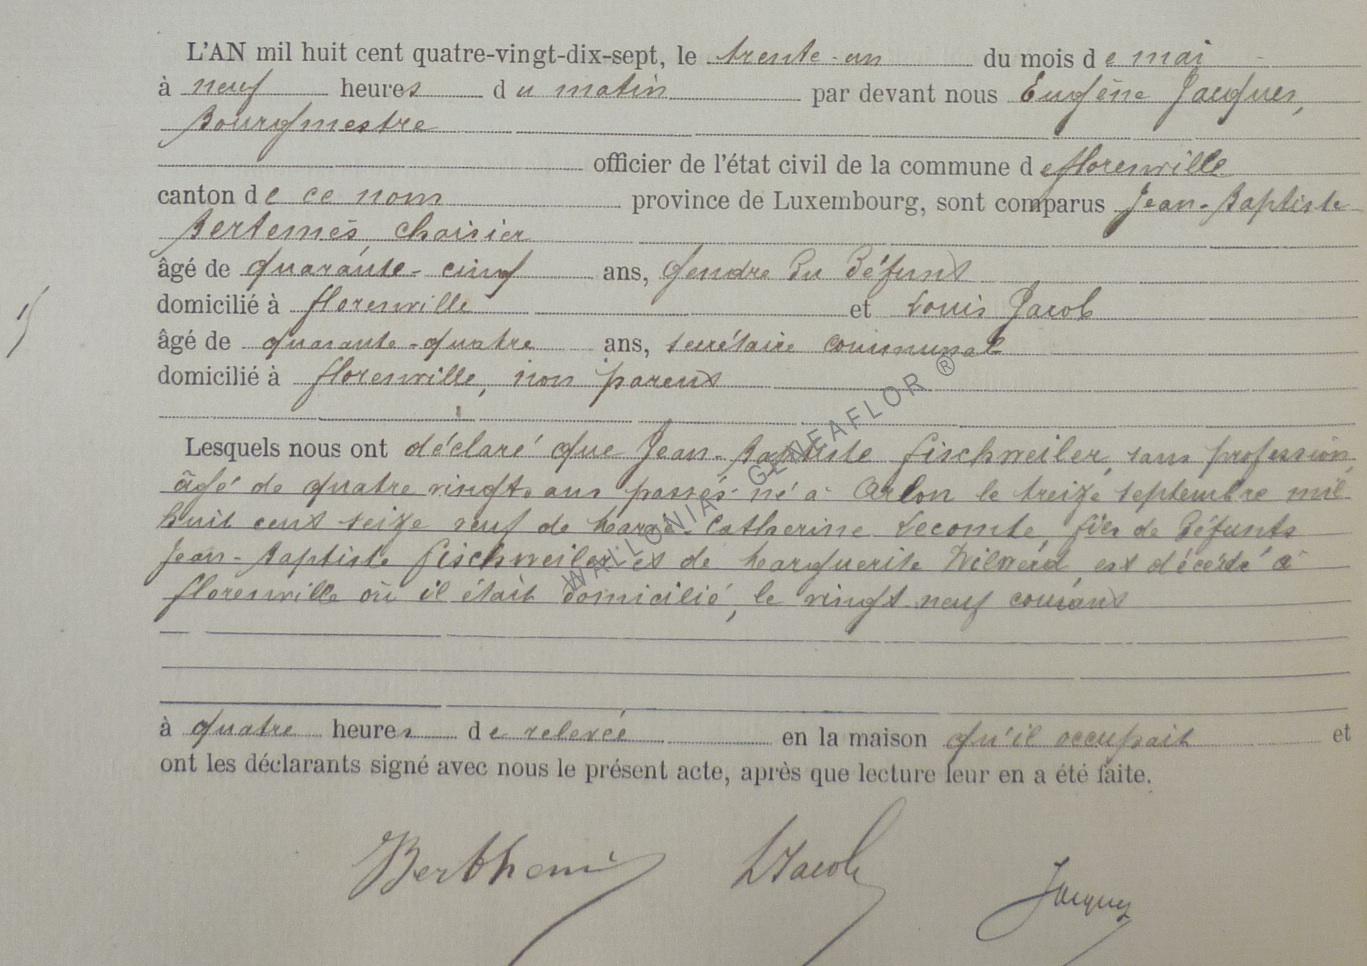 L'AN mil huit cent quatre-vingt-dix-sept, le trente-un du mois de mai
à neuf heures du matin par devant nous Eugène Jacques,
Bourgmestre
officier de l'état civil de la commune de florenville
canton de ce nom province de Luxembourg, sont comparus Jean-Baptiste
Bertemès, choisier
âgé de quarante-cinq ans, gendre du défunt
domicilié à florenville et Louis Jacob
âgé de quarante-quatre ans, secrétaire communal
domicilié à florenville, non parent
Lesquels nous ont déclaré que Jean-Baptiste Fischweiler, sans profession,
âgé de quatre vingts ans passés né à Arlon le treize septembre mil
huit cent seize veuf de Marie-Catherine Lecomte, fils de défunts
Jean-Baptiste Fischweiler et de Marguerite Wilmérd, est décédé à
florenville où il était domicilié, le vingt-neuf courant
à quatre heures de relevée en la maison qu'il occupait et
ont les déclarants signé avec nous le présent acte, après que lecture leur en a été faite.
Berthemès LJacob Jacques
WALLONIA GENEAFLOR ®